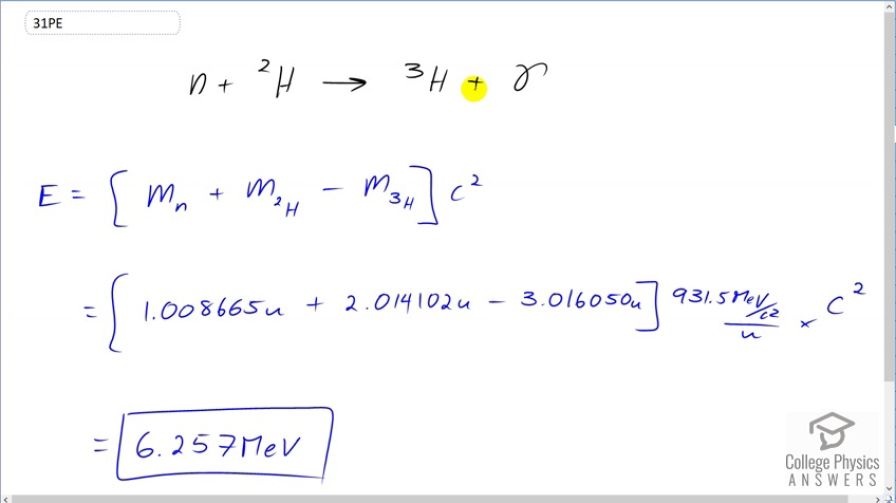 31PE
n + ²H → ³H + γ
E = [ m_n + m_²H − m_³H ] c²
= [ 1.008665u + 2.014102u − 3.016050u ] 931.5 MeV/c²/u × c²
= 6.257MeV
College Physics
ANSWERS